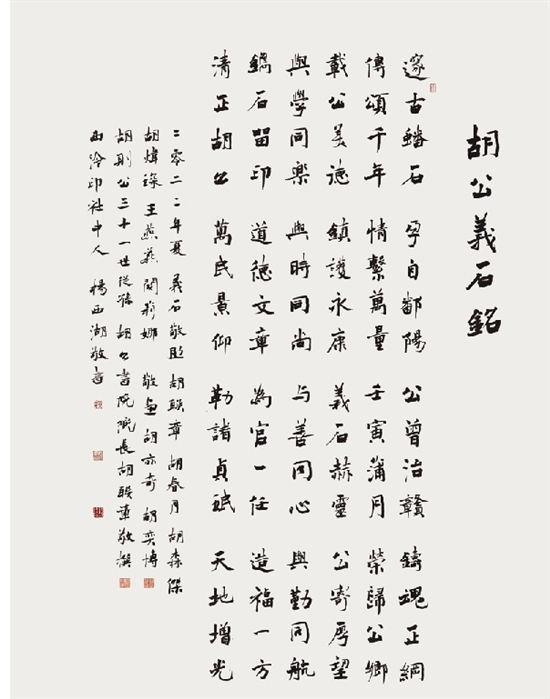 胡公義石銘
邃古蟠石 孕自鄱陽 公曾治贛 鑄魂正綱
傳頌千年 情繫萬量 壬寅蒲月 榮歸公鄉
載公美德 鎮護永康 義石赫靈 公寄厚望
與學同樂 與時同尚 与善同心 與勤同航
鐫石留印 道德文章 為官一任 造福一方
清正胡公 萬民景仰 勒諸貞珉 天地增光
二零二二年夏 義石敬 胡联章 胡春月 胡森傑
胡煒琛 王燕燕 莉娜 敬 胡亦奇 胡奕博
胡則公三十一世從孫 胡公書院院長胡联章敬撰
西泠印社中人 楊西湖敬書